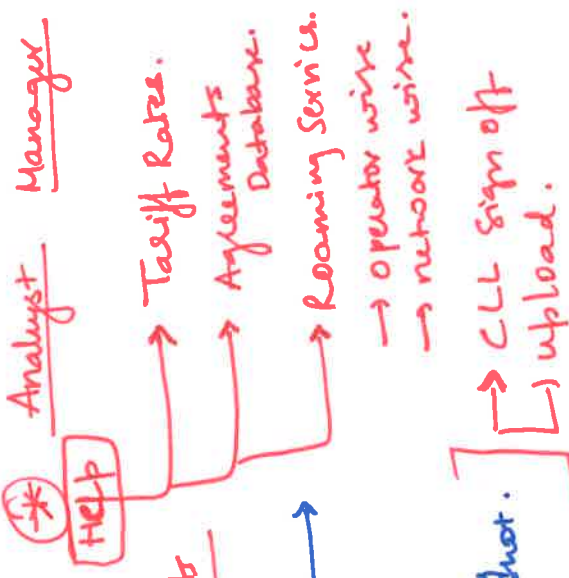 Analyst Manager
*
Help
Tariff Rates.
Agreements
Database.
Roaming Services.
→ operator wise
→ network wise.
CLL Sign off
upload.